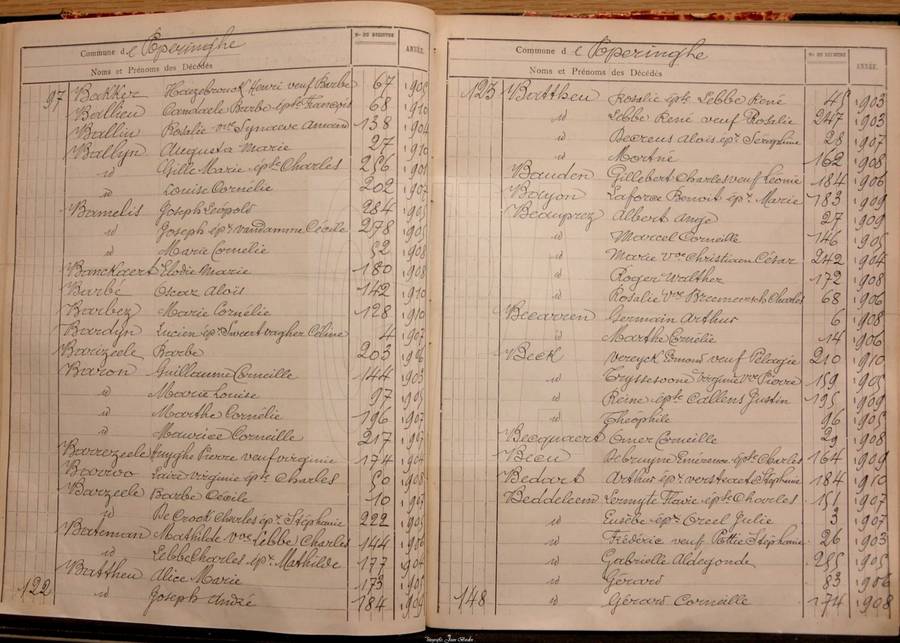 Commune de Poperinghe
Nos DU REGISTRE
ANNÉE
Noms et Prénoms des Décédés
97 Bakker Hazebrouck Henri veuf Barbe 67 1905
Ballieu Candaele Barbe épse François 68 1910
Ballin Rosalie vve Synaeve Amand 138 1904
Ballyn Augusta Marie 27 1910
id Gille Marie épse Charles 256 1901
id Louise Cornélie 202 1907
Bamelis Joseph Léopold 284 1905
id Joseph épx Vandamme Cécile 278 1905
id Marie Cornélie 52 1908
Banckaert Elodie Marie 180 1908
Barbé Oscar Aloïs 142 1910
Barbez Marie Cornélie 128 1910
Bardyn Lucien épx Swaertvagher Céline 4 1907
Barizeele Barbe 203 1906
Baron Guillaume Corneille 144 1903
id Marie Louise 97 1905
id Marthe Cornélie 196 1907
id Maurice Corneille 217 1907
Barrezeele Huyghe Pierre veuf Virginie 174 1904
Barroo Laire Virginie épse Charles 50 1908
Barzeele Barbe Cécile 10 1907
id De Crock Charles épx Stéphanie 222 1905
Bateman Mathilde vve Lebbe Charles 144 1906
id Lebbe Charles épx Mathilde 177 1904
Battheu Alice Marie 173 1905
122 id Joseph André 184 1909
Commune de Poperinghe
Nos DU REGISTRE
ANNÉE
Noms et Prénoms des Décédés
123 Battheu Rosalie épse Lebbe René 45 1903
id Lebbe René veuf Rosalie 247 1903
id Decreus Aloïs épx Séraphine 28 1907
id Mortné 162 1908
Bauden Gillebert Charles veuf Léonie 184 1906
Bayon Laforce Benoit épx Marie 183 1909
Beauprez Albert Ange 27 1909
id Marcel Corneille 146 1905
id Marie vve Christiaen César 242 1904
id Roger Walther 172 1908
id Rosalie vve Bremersch Charles 68 1906
Becarren Germain Arthur 6 1908
id Marthe Cornélie 14 1906
Beck Vereyck Edmond veuf Pélagie 210 1910
id Tryssesoone Virginie vve Pierre 159 1905
id Reine épse Callens Justin 195 1909
id Théophile 96 1905
Becquaert Omer Corneille 29 1908
Becu Debruyne Emérence épse Charles 164 1909
Bedart Arthur épx Verstraete Stéphanie 184 1910
Beddeleem Lermyte Flavie épse Charles 151 1907
id Eusèbe épx Creel Julie 3 1907
id Frédéric veuf Pottie Stéphanie 26 1903
id Gabrielle Aldegonde 255 1905
id Gérard 83 1906
148 id Gérard Corneille 174 1908